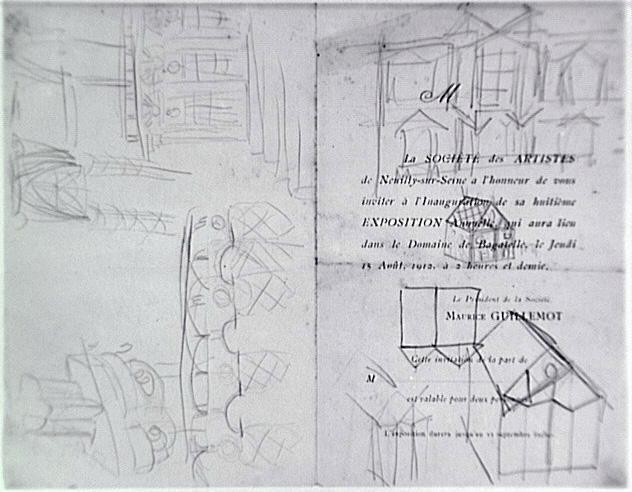 M
La SOCIÉTÉ des ARTISTES
de Neuilly-sur-Seine a l'honneur de vous
inviter à l'Inauguration de sa huitième
EXPOSITION Annuelle, qui aura lieu
dans le Domaine de Bagatelle, le Jeudi
15 Août, 1912, à 2 heures et demie.
Le Président de la Société
MAURICE GUILLEMOT
Cette invitation de la part de
M
est valable pour deux
L'exposition durera jusqu'au septembre